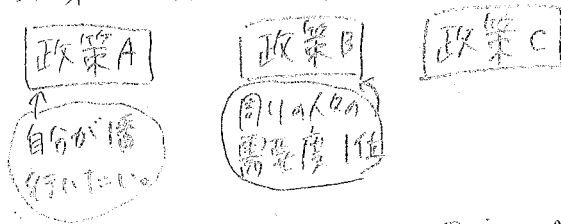 政策A
政策B
政策C
自分が1番
行いたい。
周りの人々の
需要度1位